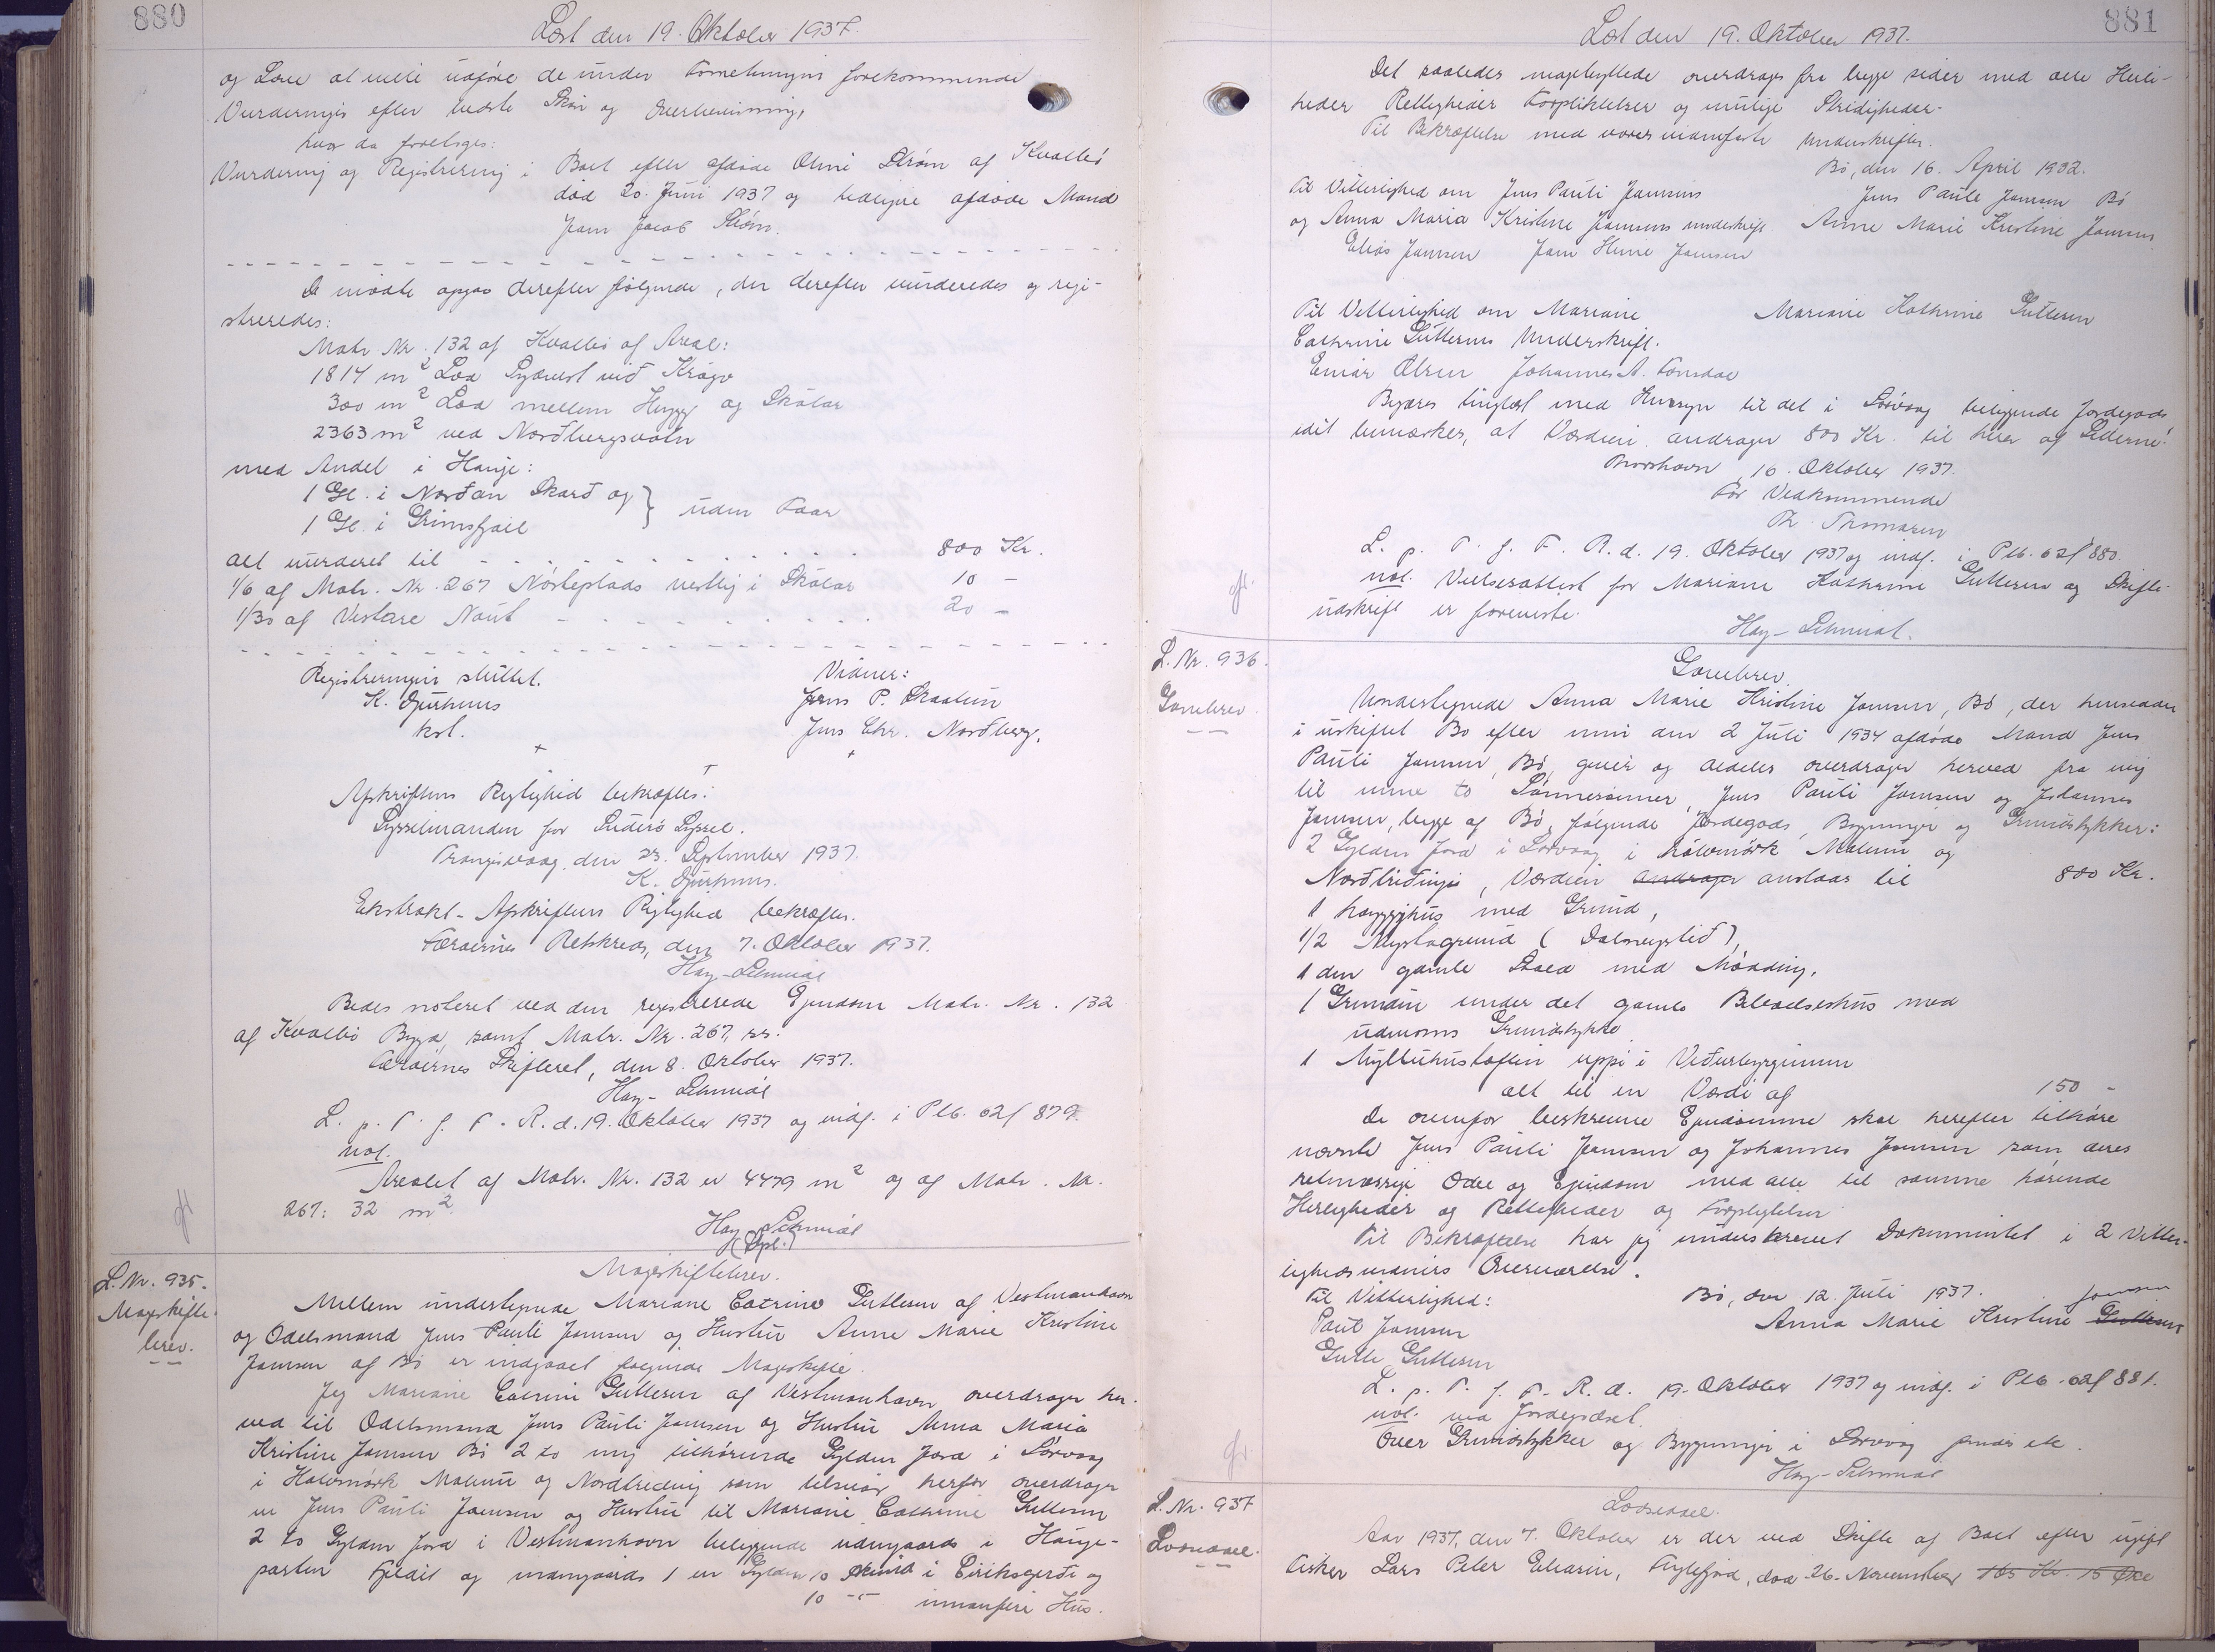 880
Læst den 19. Oktober 1937.
og Love at ville udføre de under Forretningen forekommende
Vurderinger efter bedste Skøn og Overbevisning,
hvor da foretoges:
Vurdering og Registrering i Boet efter afdøde Olevine Strøm af Kvalbø
død 20. Juni 1937 og tidligere afdøde Mand
Joen Jacob Strøm.
De mødte opgav derefter følgende, der derefter vurderedes og regi-
streredes:
Matr. Nr. 132 af Kvalbø af Areal:
1814 m² Lod Sydvest við Krógv
300 m² Lod mellem Hegg og Skálar
2363 m² ved Norðbergsvatn
med Andel i Hauje:
1 Gl. i Norðan Skarð og
1 Gl. i Grimsfjall } uden Faar
alt vurderet til 800 Kr.
1/6 af Matr. Nr. 267 Nøsteplads vestlig i Skálar 10 -
1/30 af Vestare Naut 20 -
Registreringen sluttet. Vidner:
K. Djurhuus Jens P. Skaalum
kst. Jens Chr. Norðberg.
Afskriftens Rigtighed bekræftes:
Sysselmanden for Suderø Syssel.
Trangisvaag, den 23. September 1937.
K. Djurhuus.
Ekstrakt-Afskriftens Rigtighed bekræftes.
Færøernes Retskreds, den 7. Oktober 1937.
Hay-Schmidt
Bedes noteret ved den registrerede Ejendom Matr. Nr. 132
af Kvalbø Bygd, samt Matr. Nr. 267, ss.
Færøernes Skifteret, den 8. Oktober 1937.
Hay-Schmidt
L. p. T. f. F. R. d. 19. Oktober 1937 og indf. i Plb. 62f 879.
not.
Arealet af Matr. Nr. 132 er 4479 m² og af Matr. Nr.
267: 32 m².
Hay Schmidt
(Spl.)
L. Nr. 935.
Mageskifte-
brev.
Mageskiftebrev.
Mellem undertegnede Mariane Catrine Guttesen af Vestmanhavn
og Odelsmand Jens Pauli Joensen og Hustru Anne Marie Kristine
Joensen af Bø er indgaaet følgende Mageskifte.
Jeg Mariane Catrine Guttesen af Vestmanhavn overdrager her-
ved til Odelsmand Jens Pauli Joensen og Hustru Anna Maria
Kristine Joensen Bø 2 to mig tilhørende Gylden Jord i Sørvaag
i Halvmørk Malunu og Nordlreding som tilsvar herfor overdrager
vi Jens Pauli Joensen og Hustru til Mariane Cathrine Guttesen
2 to Gylden Jord i Vestmanhavn beliggende udengaards i Hauge-
parten Fjeldit og indengaards 1 en Gylden 10 Skind i Eiriksgerði og
10 -"- innanfyri Hús.
881
Læst den 19. Oktober 1937.
Det saaledes mageskyftede overdrages fra begge sider med alle Herlig-
heder Rettigheder Forpliktelser og mulige Stridigheder.
Til Bekræftelse med vores vidnefaste Underskrifter.
Bø, den 16. April 1932.
Til Vitterlighed om Jens Pauli Joensens Jens Pauli Joensen Bø
og Anna Maria Kristine Joensens underskrift. Anne Marie Kristine Joensen
Elias Joensen Joen Hene Joensen
Til Vitterlighed om Mariane Mariane Kathrine Guttesen
Cathrine Guttesens Underskrift.
Einar Olsen Johannes A. Fonsdal
Begæres tinglæst med Hensyn til det i Sørvaag beliggende Jordegods,
idet bemærkes, at Værdien andrager 800 Kr. til hver af Siderne.
Thorshavn, 16. Oktober 1937.
For Vedkommende
Th. Thomasen
L. p. T. f. F. R. d. 19. Oktober 1937 og indf. i Plb. 62f 880.
not. Vielsesattest for Mariane Kathrine Guttesen og Skifte-
udskrift er foreviste.
Hay-Schmidt.
L. Nr. 936.
Gavebrev.
Gavebrev.
Undertegnede Anna Marie Kristine Joensen, Bø, der hensidder
i uskiftet Bo efter min den 2 Juli 1934 afdøde Mand Jens
Pauli Joensen, Bø, giver og aldeles overdrager herved fra mig
til mine to Sønnesønner, Jens Pauli Joensen og Johannes
Joensen, begge af Bø, følgende Jordegods, Bygninger og Grundstykker:
2 Gylden Jord i Sørvaag i hálvmørk Malunu og
Norðlriðingi, Værdien andrager anslaas til 800 Kr.
1 hoyggjhús med Grund,
1/2 Nystagrund (
1 den gamle Stald med Mødding,
1 Grunden under det gamle Beboelseshus med
udenoms Grundstykke
1 Mylluhústoftin uppi i Viðurbyrgjinum
alt til en Værdi af 150 -
De ovenfor beskrevne Ejendomme skal herefter tilhøre
nævnte Jens Pauli Joensen og Johannes Joensen som deres
retmæssige Odel og Ejendom med alle til samme hørende
Herligheder og Rettigheder og Forpligtelser
Til Bekræftelse har jeg underskrevet Dokumentet i 2 Vitter-
lighedsvidners Overværelse.
Bø, den 12. Juli 1937.
Til Vitterlighed: Joensen
Poul Joensen Anna Marie Kristine Guttesen
Gutte Guttesen
L. p. T. f. F. R. d. 19. Oktober 1937 og indf. i Plb. 62f 881.
not. ved Jordegodset.
Over Grundstykker og Bygninger i Sørvaag findes ele.
Hay-Schmidt
L. Nr. 937
Lodseddel.
Lodseddel.
Aar 1937, den 7. Oktober er der ved Skifte af Boet efter ugift
Fisker Lars Peter Eliasen, Fuglefjord, død 26. November 185 Kr. 15 Øre